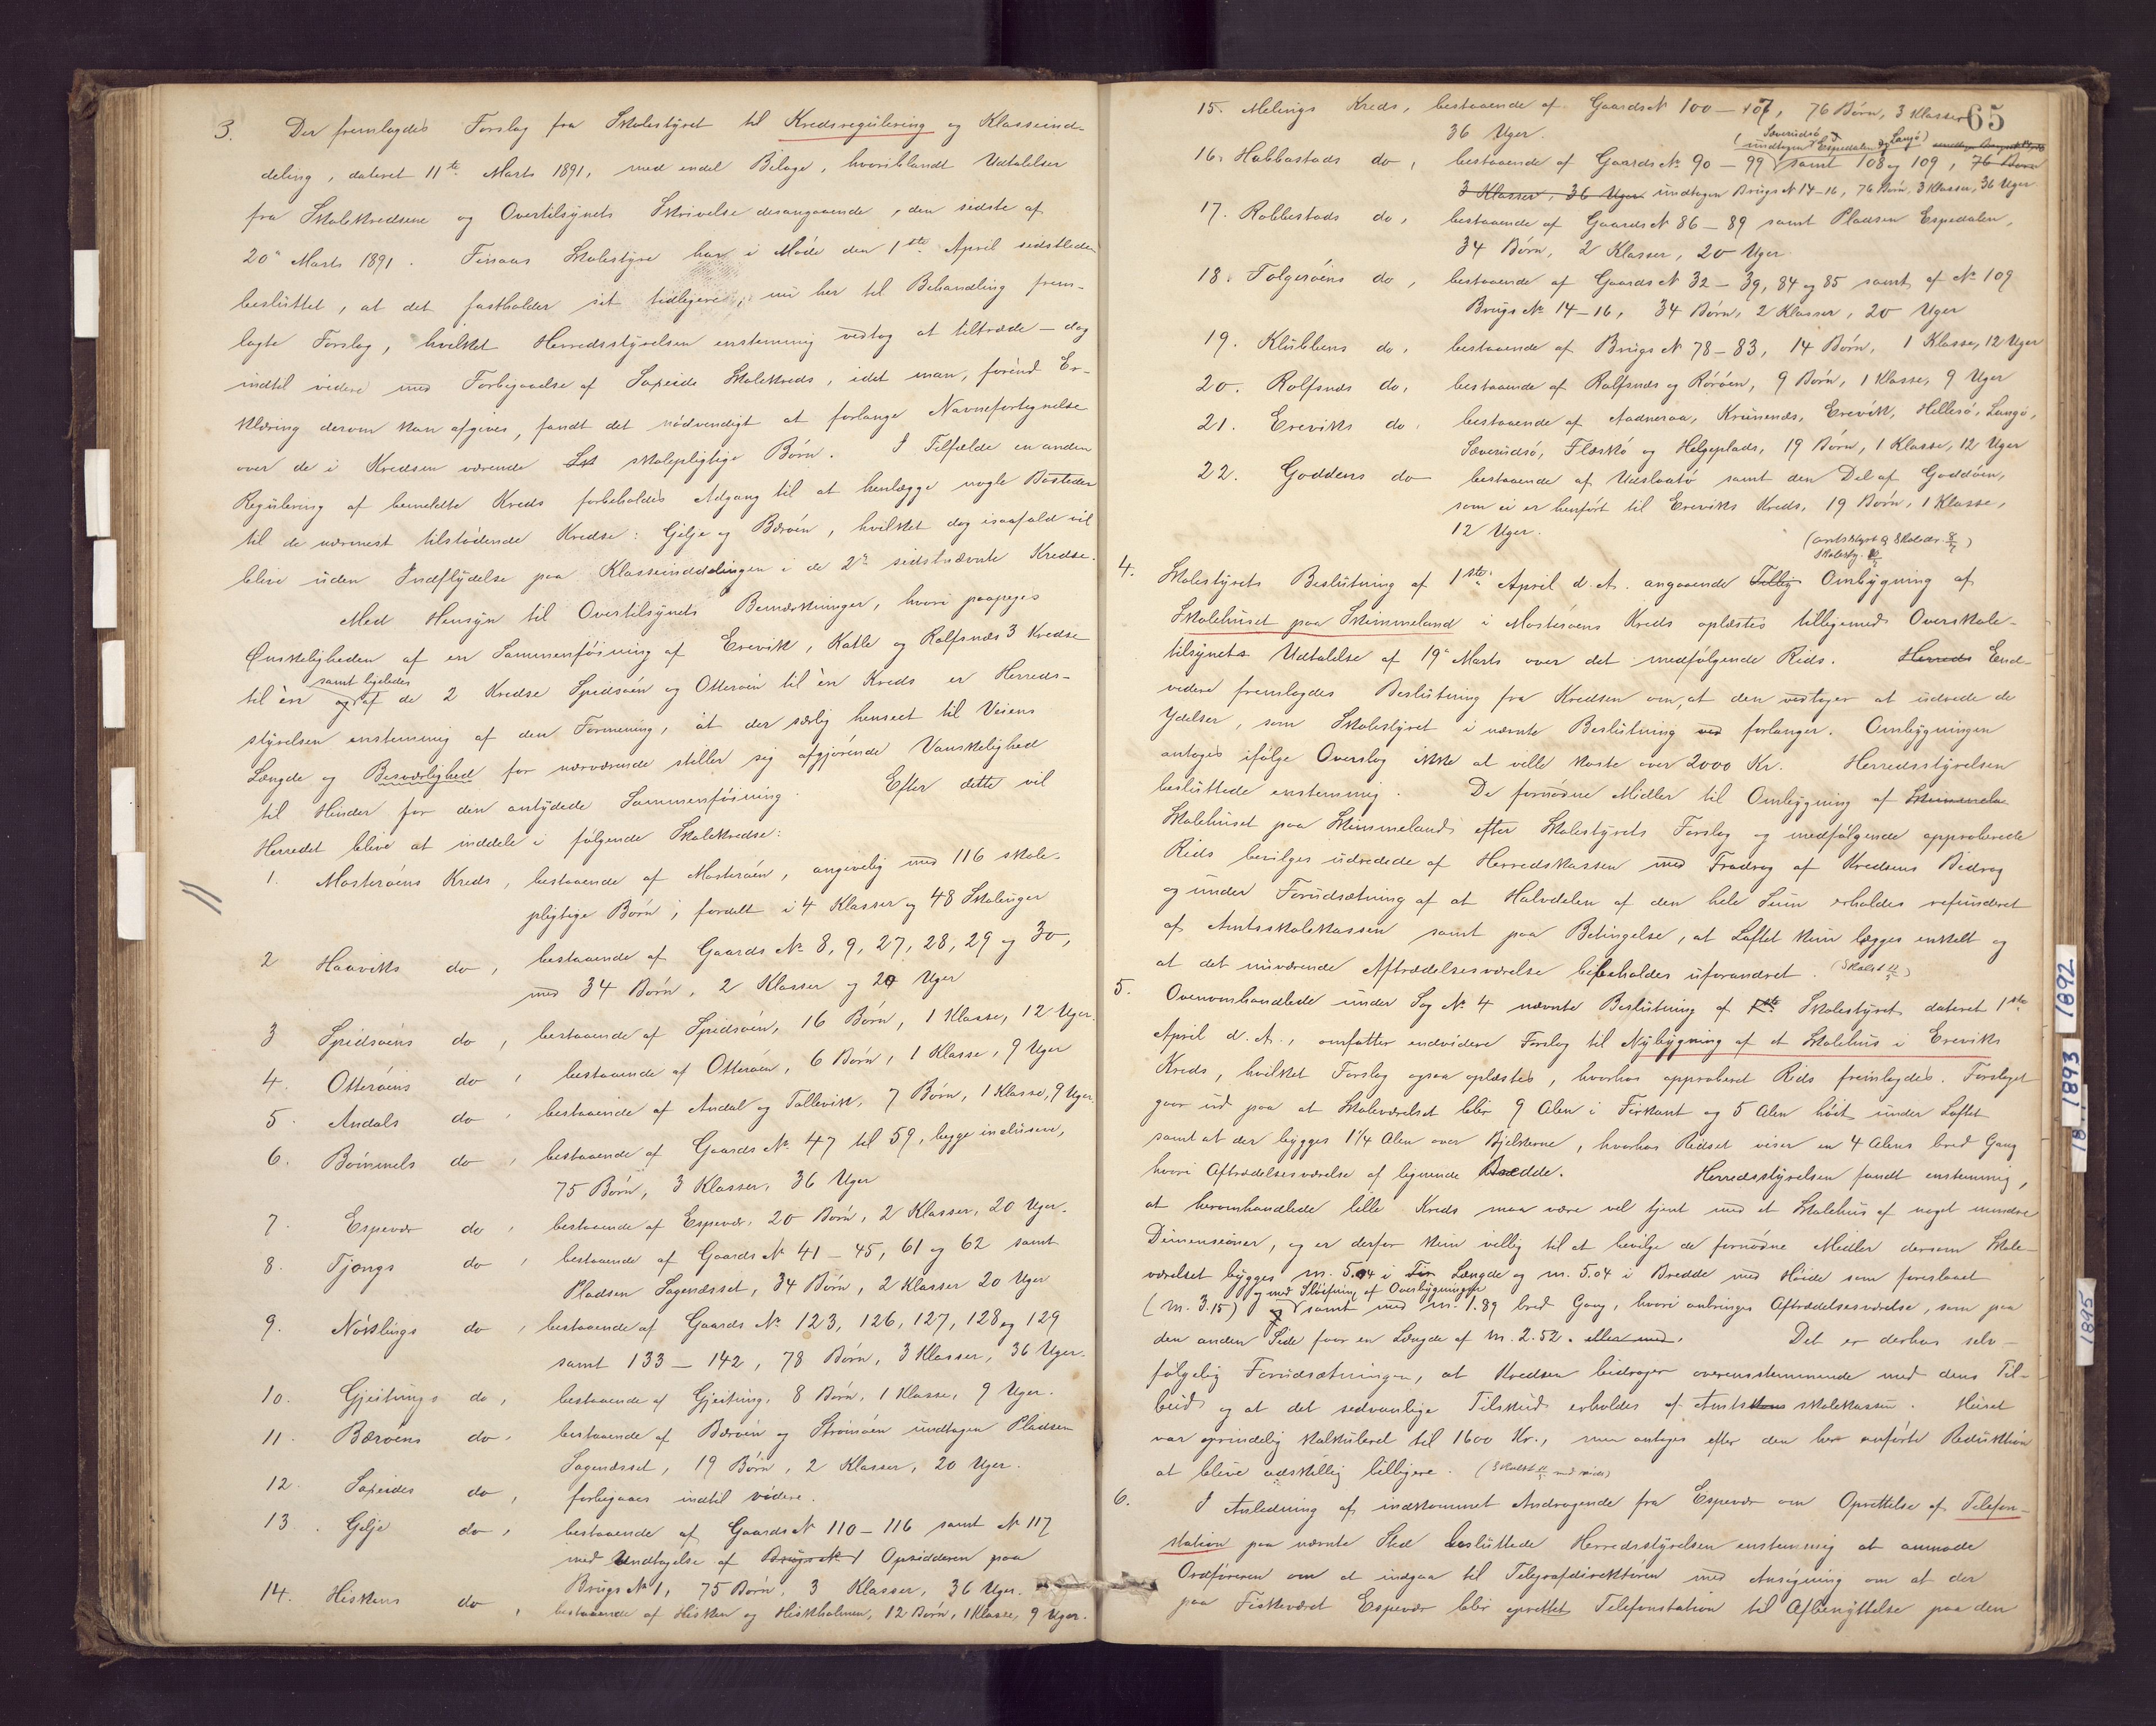 3. Der fremlagdes Forslag fra Skolestyret til Kredsregulering og Klasseind-
deling, dateret 11te Marts 1891, med endel Bilage, hvoriblandt Udtalelser
fra Skolekredsene og Overtilsynets Skrivelse desangaaende, den sidste af
20de Marts 1891. Finaas Skolestyre har i Møde den 1ste April sidstleden
besluttet, at det fastholder sit tidligere, nu her til Behandling frem-
lagte Forslag, hvilket Herredsstyrelsen enstemmig vedtog at tiltræde - dog
indtil videre med Forbigaaelse af Sakseide Skolekreds, idet man, førend Er-
klæring derom kan afgives, fandt det nødvendigt at forlange Navnefortegnelse
over de i Kredsen værende skolepligtige Børn. I Tilfælde en anden
Regulering af bemeldte Kreds forbeholdes Adgang til at henlægge nogle Bosteder
til de nærmest tilstødende Kredse: Gilje og Bærøen, hvilket dog isaafald vil
blive uden Indflydelse paa Klasseinddelingen i de 2de sidstnævnte Kredse.
Med Hensyn til Overtilsynets Bemærkninger, hvori paapeges
Ønskeligheden af en Sammenføining af Erevik, Katle og Rolfsnæs 3 Kredse
samt ligeledes
til èn og af de 2 Kredse Spidsøen og Otterøen til èn Kreds er Herreds-
styrelsen enstemmig af den Formening, at der særlig henseet til Veiens
Længde og Besværlighed for nærværende stiller sig afgjørende Vanskelighed
til Hinder for den antydede Sammenføining. Efter dette vil
Herredet blive at inddele i følgende Skolekredse:
1. Mosterøens Kreds, bestaaende af Mosterøen, angivelig med 116 skole-
pligtige Børn, fordelt i 4 Klasser og 48 Skoleuger
2 Haaviks do, bestaaende af Gaards No 8, 9, 27, 28, 29 og 30,
med 34 Børn, 2 Klasser og 20 Uger
3 Spidsøens do, bestaaende af Spidsøen, 16 Børn, 1 Klasse, 12 Uger.
4. Otterøens do, bestaaende af Otterøen, 6 Børn, 1 Klasse, 9 Uger
5. Andals do, bestaaende af Andal og Tollevik, 7 Børn, 1 Klasse, 9 Uger.
6. Bømmels do, bestaaende af Gaards No 47 til 59, begge inclusive,
75 Børn, 3 Klasser, 36 Uger
7. Espevær do, bestaaende af Espevær, 20 Børn, 2 Klasser, 20 Uger.
8. Tjongs do, bestaaende af Gaards No 41 - 45, 61 og 62 samt
Pladsen Sagenæsset, 34 Børn, 2 Klasser 20 Uger
9. Nøklings do, bestaaende af Gaards No 123, 126, 127, 128 og 129
samt 133 - 142, 78 Børn, 3 Klasser, 36 Uger.
10. Gjeitungs do, bestaaende af Gjeitung, 8 Børn, 1 Klasse, 9 Uger.
11. Bærøens do, bestaaende af Bærøen og Strømøen undtagen Pladsen
Sagenæsset, 19 Børn, 2 Klasser, 20 Uger.
12. Sakseides do, forbigaaes indtil videre.
13. Gilje do, bestaaende af Gaards No 110 - 116 samt No 117
med Undtagelse af Brugs No 1 Opsidderen paa
Brugs No 1, 75 Børn, 3 Klasser, 36 Uger.
14. Hiskens do, bestaaende af Hisken og Hiskholmen, 12 Børn, 1 Klasse, 9 Uger.
65
15. Melings Kreds, bestaaende af Gaards No 100 - 107, 76 Børn, 3 Klasser
36 Uger.
(undtagen Sæverudsø, Espedalen og Langø)
16. Habbestads do, bestaaende af Gaards No 90 - 99 samt 108 og 109, 76 Børn
3 Klasser, 36 Uger undtagen Brugs No 14-16, 76 Børn, 3 Klasser, 36 Uger
17. Robbestads do, bestaaende af Gaards No 86 - 89 samt Pladsen Espedalen,
34 Børn, 2 Klasser, 20 Uger
18. Folgerøens do, bestaaende af Gaards No 32 - 39, 84 og 85 samt af No 109
Brugs No 14-16, 34 Børn, 2 Klasser, 20 Uger
19. Klubbens do, bestaaende af Brugs No 78 - 83, 14 Børn, 1 Klasse, 12 Uger
20. Rolfsnæs do, bestaaende af Rolfsnæs og Rørøen, 9 Børn, 1 Klasse, 9 Uger
21. Ereviks do, bestaaende af Aadneraa, Kruunenæs, Erevik, Hillesø, Langø,
Sæverudsø, Flæskø og Helgeplads, 19 Børn, 1 Klasse, 12 Uger
22. Goddens do bestaaende af Udslaatø samt den Del af Goddøen,
som ei er henført til Ereviks Kreds, 19 Børn, 1 Klasse,
12 Uger.
4. Skolestyrets Beslutning af 1ste April d. A. angaaende Tilby Ombygning af
Skolehuset paa Skimmeland i Mosterøens Kreds oplæstes tilligemed Overskole-
tilsynets Udtalelse af 19de Marts over det medfølgende Rids. Herreds End-
videre fremlagdes Beslutning fra Kredsen om, at den vedtager at udrede de
Ydelser, som Skolestyret i nævnte Beslutning ved forlanger. Ombygningen
antages ifølge Overslag ikke at ville koste over 2000 Kr. Herredsstyrelsen
besluttede enstemmig. De fornødne Midler til Ombygning af Skimmela
Skolehuset paa Skimmeland efter Skolestyrets Forslag og medfølgende approberede
Rids bevilges udredede af Herredskassen med Fradrag af Kredsens Bidrag
og under Forudsætning af at Halvdelen af den hele Sum erholdes refunderet
af Amtsskolekassen samt paa Betingelse, at Loftet kun lægges enkelt og
at det nuværende Aftrædelsesværelse bibeholdes uforandret.
5. Ovenomhandlede under Sag No 4 nævnte Beslutning af Skolestyret dateret 1ste
April d. A., omfatter endvidere Forslag til Nybygning af et Skolehus i Ereviks
Kreds, hvilket Forslag ogsaa oplæstes, hvorhos approberet Rids fremlagdes. Forslaget
gaar ud paa at Skoleværelset blir 9 Alen i Firkant og 5 Alen høit under Loftet
samt at der bygges 1 1/4 Alen over Bjelkerne, hvorhos Ridset viser en 4 Alens bred Gang
hvori Aftrædelsesværelse af lignende Bredde. Herredsstyrelsen fandt enstemmig,
at heromhandlede lille Kreds maa være vel tjent med et Skolehus af noget mindre
Dimensioner, og er derfor kun villig til at bevilge de fornødne Midler dersom Skole-
værelset bygges m. 5.04 i Længde og m. 5.04 i Bredde med Høide som foreslaaet
og med Sløifning af Overbygningen
(m. 3.15) samt med m. 1.89 bred Gang, hvori anbringes Aftrædelsesværelse, som paa
den anden Side faar en Længde af m. 2.52. eller med. Det er derhos selv-
følgelig Forudsætningen, at Kredsen bidrager overensstemmende med dens Til-
bud og at det sedvanlige Tilskud erholdes af Amtsskolekassen. Huset
var oprindelig kalkuleret til 1600 Kr., men antages efter den her anførte Reduktion
at blive adskillig billigere.
6. I Anledning af indkommet Andragende fra Espevær om Oprettelse af Telefon-
station paa nævnte Sted besluttede Herredsstyrelsen enstemmig at anmode
Ordføreren om at indgaa til Telegrafdirektøren med Ansøgning om at der
paa Fiskeværet Espevær blir oprettet Telefonstation til Afbenyttelse paa den
1892
1893
18
1895